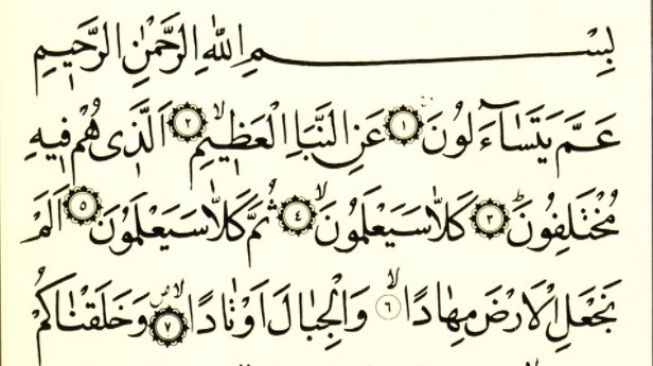 بِسْمِ اللّٰهِ الرَّحْمٰنِ الرَّحٖيمِ
عَمَّ يَتَسَٓاءَلُونَ ﴿١﴾ عَنِ النَّبَاِ الْعَظٖيمِۙ ﴿٢﴾ اَلَّذٖى هُمْ فٖيهِ
مُخْتَلِفُونَۜ ﴿٣﴾ كَلَّا سَيَعْلَمُونَۙ ﴿٤﴾ ثُمَّ كَلَّا سَيَعْلَمُونَ ﴿٥﴾ اَلَمْ
نَجْعَلِ الْاَرْضَ مِهَادًاۙ ﴿٦﴾ وَالْجِبَالَ اَوْتَادًاۙ ﴿٧﴾ وَخَلَقْنَاكُمْ